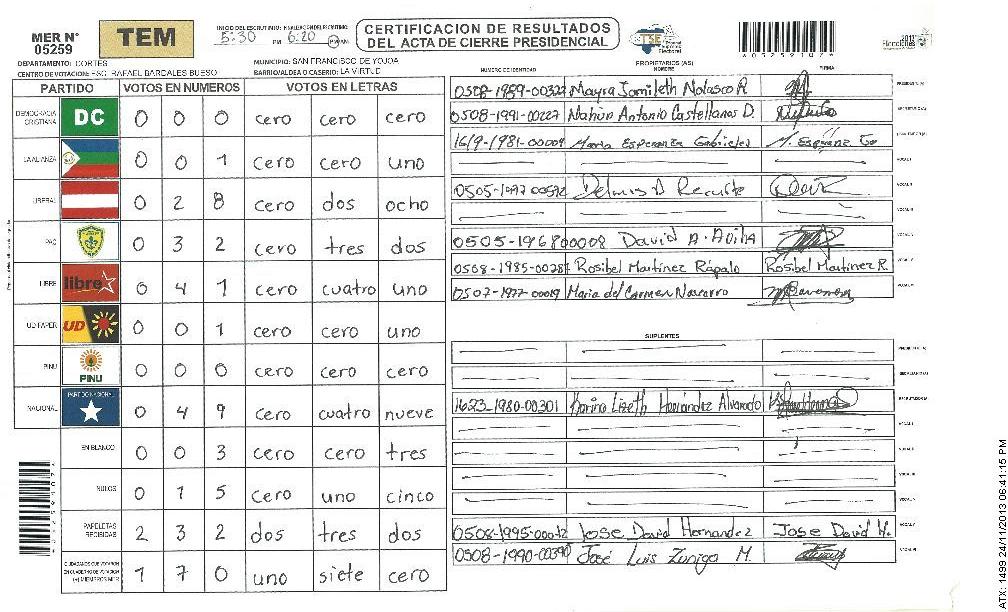 MER N° 05259
TEM
INICIO DEL ESCRUTINIO: FINALIZACION DEL ESCRUTINIO:
5:30 PM 6:20 PM AM
CERTIFICACION DE RESULTADOS
DEL ACTA DE CIERRE PRESIDENCIAL
TSE
DEPARTAMENTO: CORTES
MUNICIPIO: SAN FRANCISCO DE YOJOA
CENTRO DE VOTACION: ESC. RAFAEL BARDALES BUESO
BARRIO/ALDEA O CASERIO: LA VIRTUD
PARTIDO VOTOS EN NUMEROS VOTOS EN LETRAS
DEMOCRACIA CRISTIANA DC 0 0 0 cero cero cero
LA ALIANZA 0 0 1 cero cero uno
LIBERAL 0 2 8 cero dos ocho
PAC 0 3 2 cero tres dos
LIBRE libre 0 4 1 cero cuatro uno
UD FAPER UD 0 0 1 cero cero uno
PINU PINU 0 0 0 cero cero cero
NACIONAL PARTIDO NACIONAL 0 4 9 cero cuatro nueve
EN BLANCO 0 0 3 cero cero tres
NULOS 0 1 5 cero uno cinco
PAPELETAS RECIBIDAS 2 3 2 dos tres dos
CIUDADANOS QUE VOTARON EN CUADERNO DE VOTACION (+) MIEMBROS MER 1 7 0 uno siete cero
PROPIETARIOS (AS)
NUMERO DE IDENTIDAD NOMBRE FIRMA
0508-1959-00327 Mayra Jamileth Nolasco R
0508-1991-00227 Nahún Antonio Castellanos D.
1619-1981-00004 Maria Esperanza Gabrieles
0505-1977-00592 Delmis A Recarte
0505-196800008 David A. Avila
0508-1985-00287 Rosibel Martinez Rápalo Rosibel Martinez R.
0507-1977-00019 Maria del Carmen Navarro
SUPLENTES
1623-1980-00301 Karina Lizeth Hernández Alvarado
0508-1995-00012 Jose David Hernandez Jose David H.
0508-1990-00390 José Luis Zuniga M.
ATX: 1499 24/11/2013 06:41:15 PM